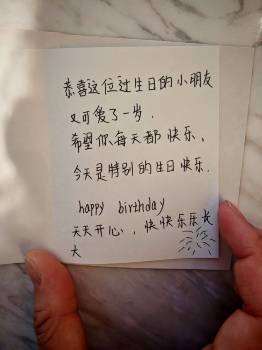 恭喜这位过生日的小朋友
又可爱了一岁.
希望你每天都快乐,
今天是特别的生日快乐.
happy birthday
天天开心，快快乐乐长
大